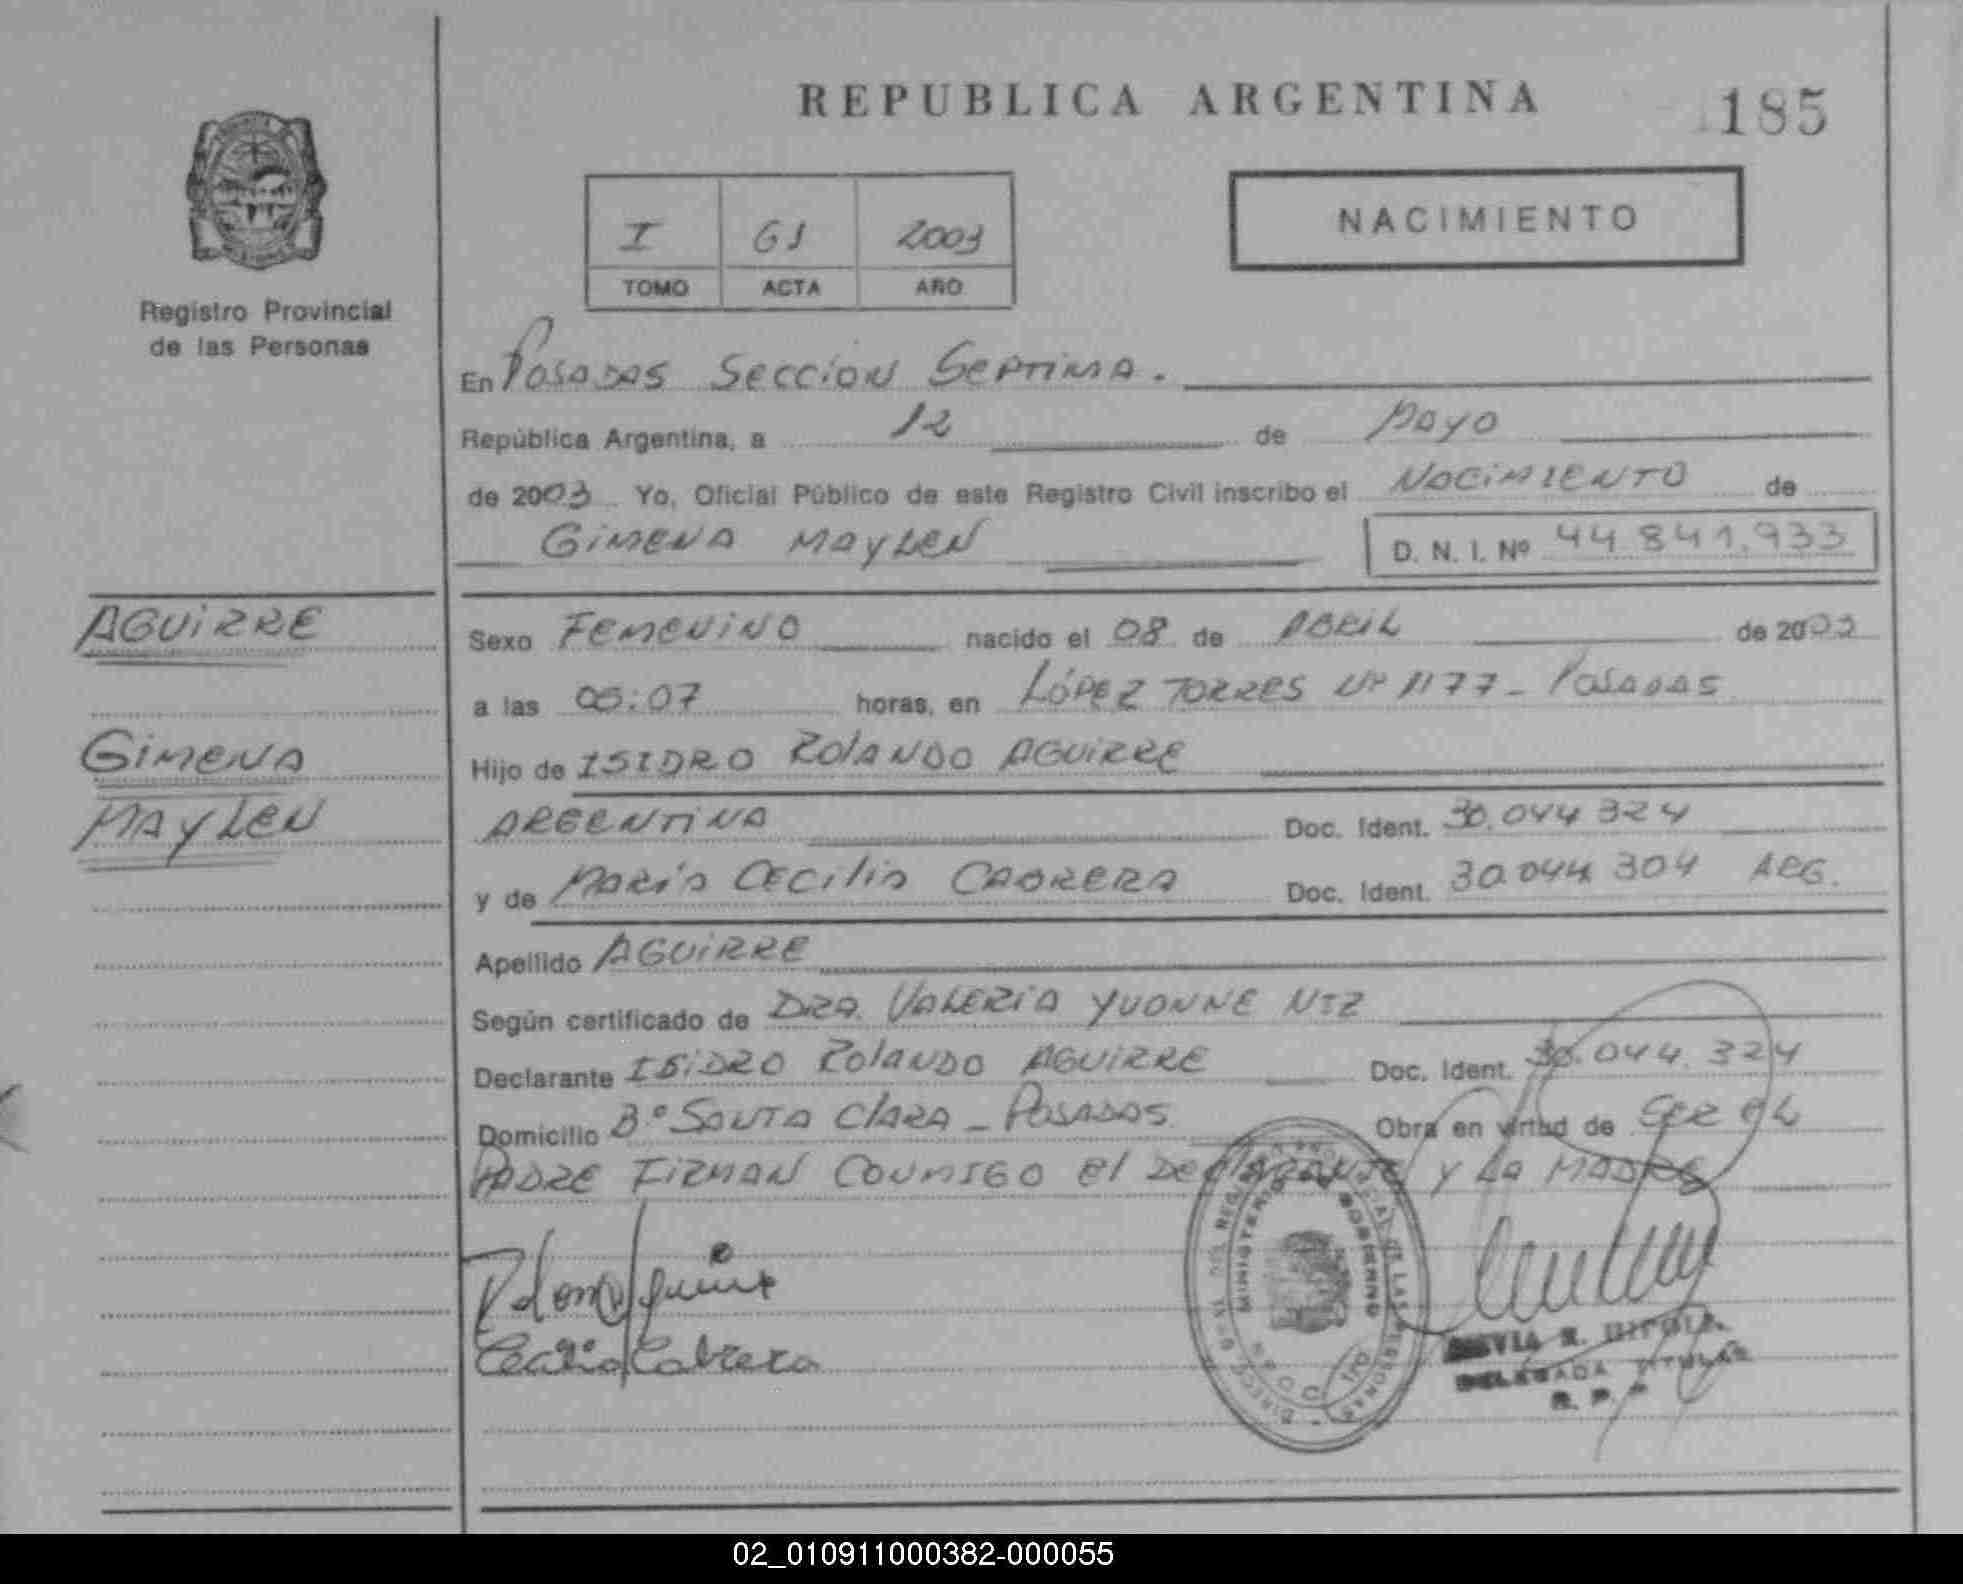 REPUBLICA ARGENTINA
185
NACIMIENTO
I 2003
TOMO ACTA AÑO
Registro Provincial
de las Personas
En Posadas Seccion Septima.
República Argentina, a 12 de Mayo
de 2003 Yo, Oficial Público de este Registro Civil inscribo el Nacimiento de
Gimena Maylen D. N. I. Nº 44.841.933
AGUIRRE
Gimena
Maylen
Sexo Femenino nacido el 08 de Abril de 20
a las horas, en López Torres Nº 1177 - Posadas
Hijo de Isidro Rolando Aguirre
Argentina Doc. Ident. 30.044 324
y de María Cecilia Cabrera Doc. Ident. 30.044 304 ARG.
Apellido Aguirre
Según certificado de Dra. Valeria Yvonne
Declarante Isidro Rolando Aguirre Doc. Ident. 30.044.324
Domicilio Bº Santa Clara - Posadas Obra en virtud de ser el
Padre Firman conmigo el declarante y la madre
Cecilia Cabrera
DELEGADA TITULAR
R. P. P.
02_010911000382-000055